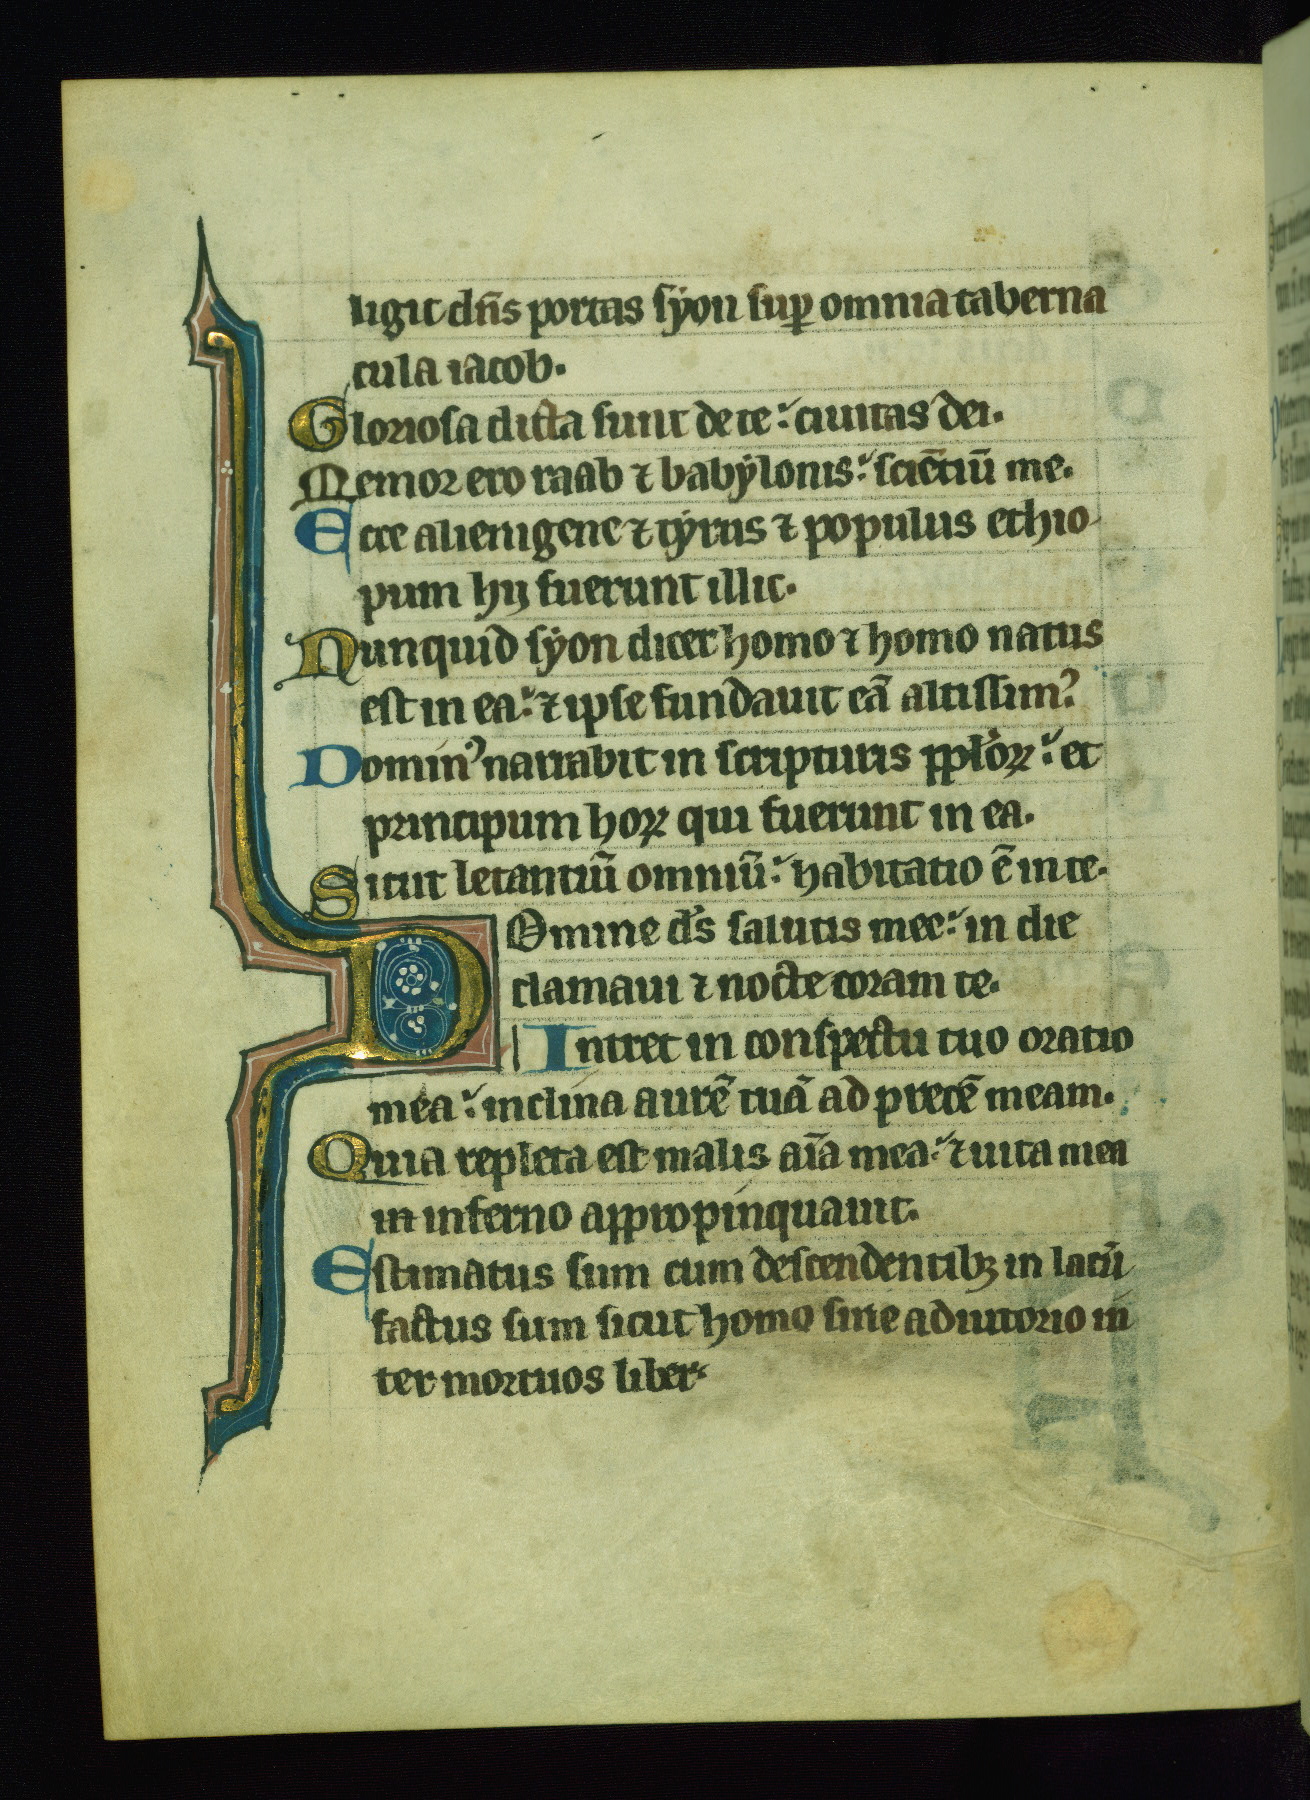 ligit dñs portas sẏon suꝑ omnia taberna
cula iacob.
Gloriosa dicta sunt de te: ciuitas dei.
Memor ero raab ⁊ babẏlonis: sciẽtiũ me.
Ecce alienigene ⁊ tẏrus ⁊ populus ethio-
pum hij fuerunt illic.
Nunquid sẏon dicet homo ⁊ homo natus
est in ea: ⁊ ipse fundauit eã altissimꝰ
Dominꝰ narrabit in scripturis ppl'oꝝ: et
principum hoꝝ qui fuerunt in ea.
Sicut letantiũ omniũ: habitatio ẽ in te.
Domine ds̃ salutis mee: in die
clamaui ⁊ nocte coram te.
Intret in conspectu tuo oratio
mea: inclina aurẽ tuã ad precẽ meam.
Quia repleta est malis aĩa mea: ⁊ uita mea
in inferno appropinquauit.
Estimatus sum cum descendentibꝫ in lacũ
factus sum sicut homo sine adiutorio in
ter mortuos liber